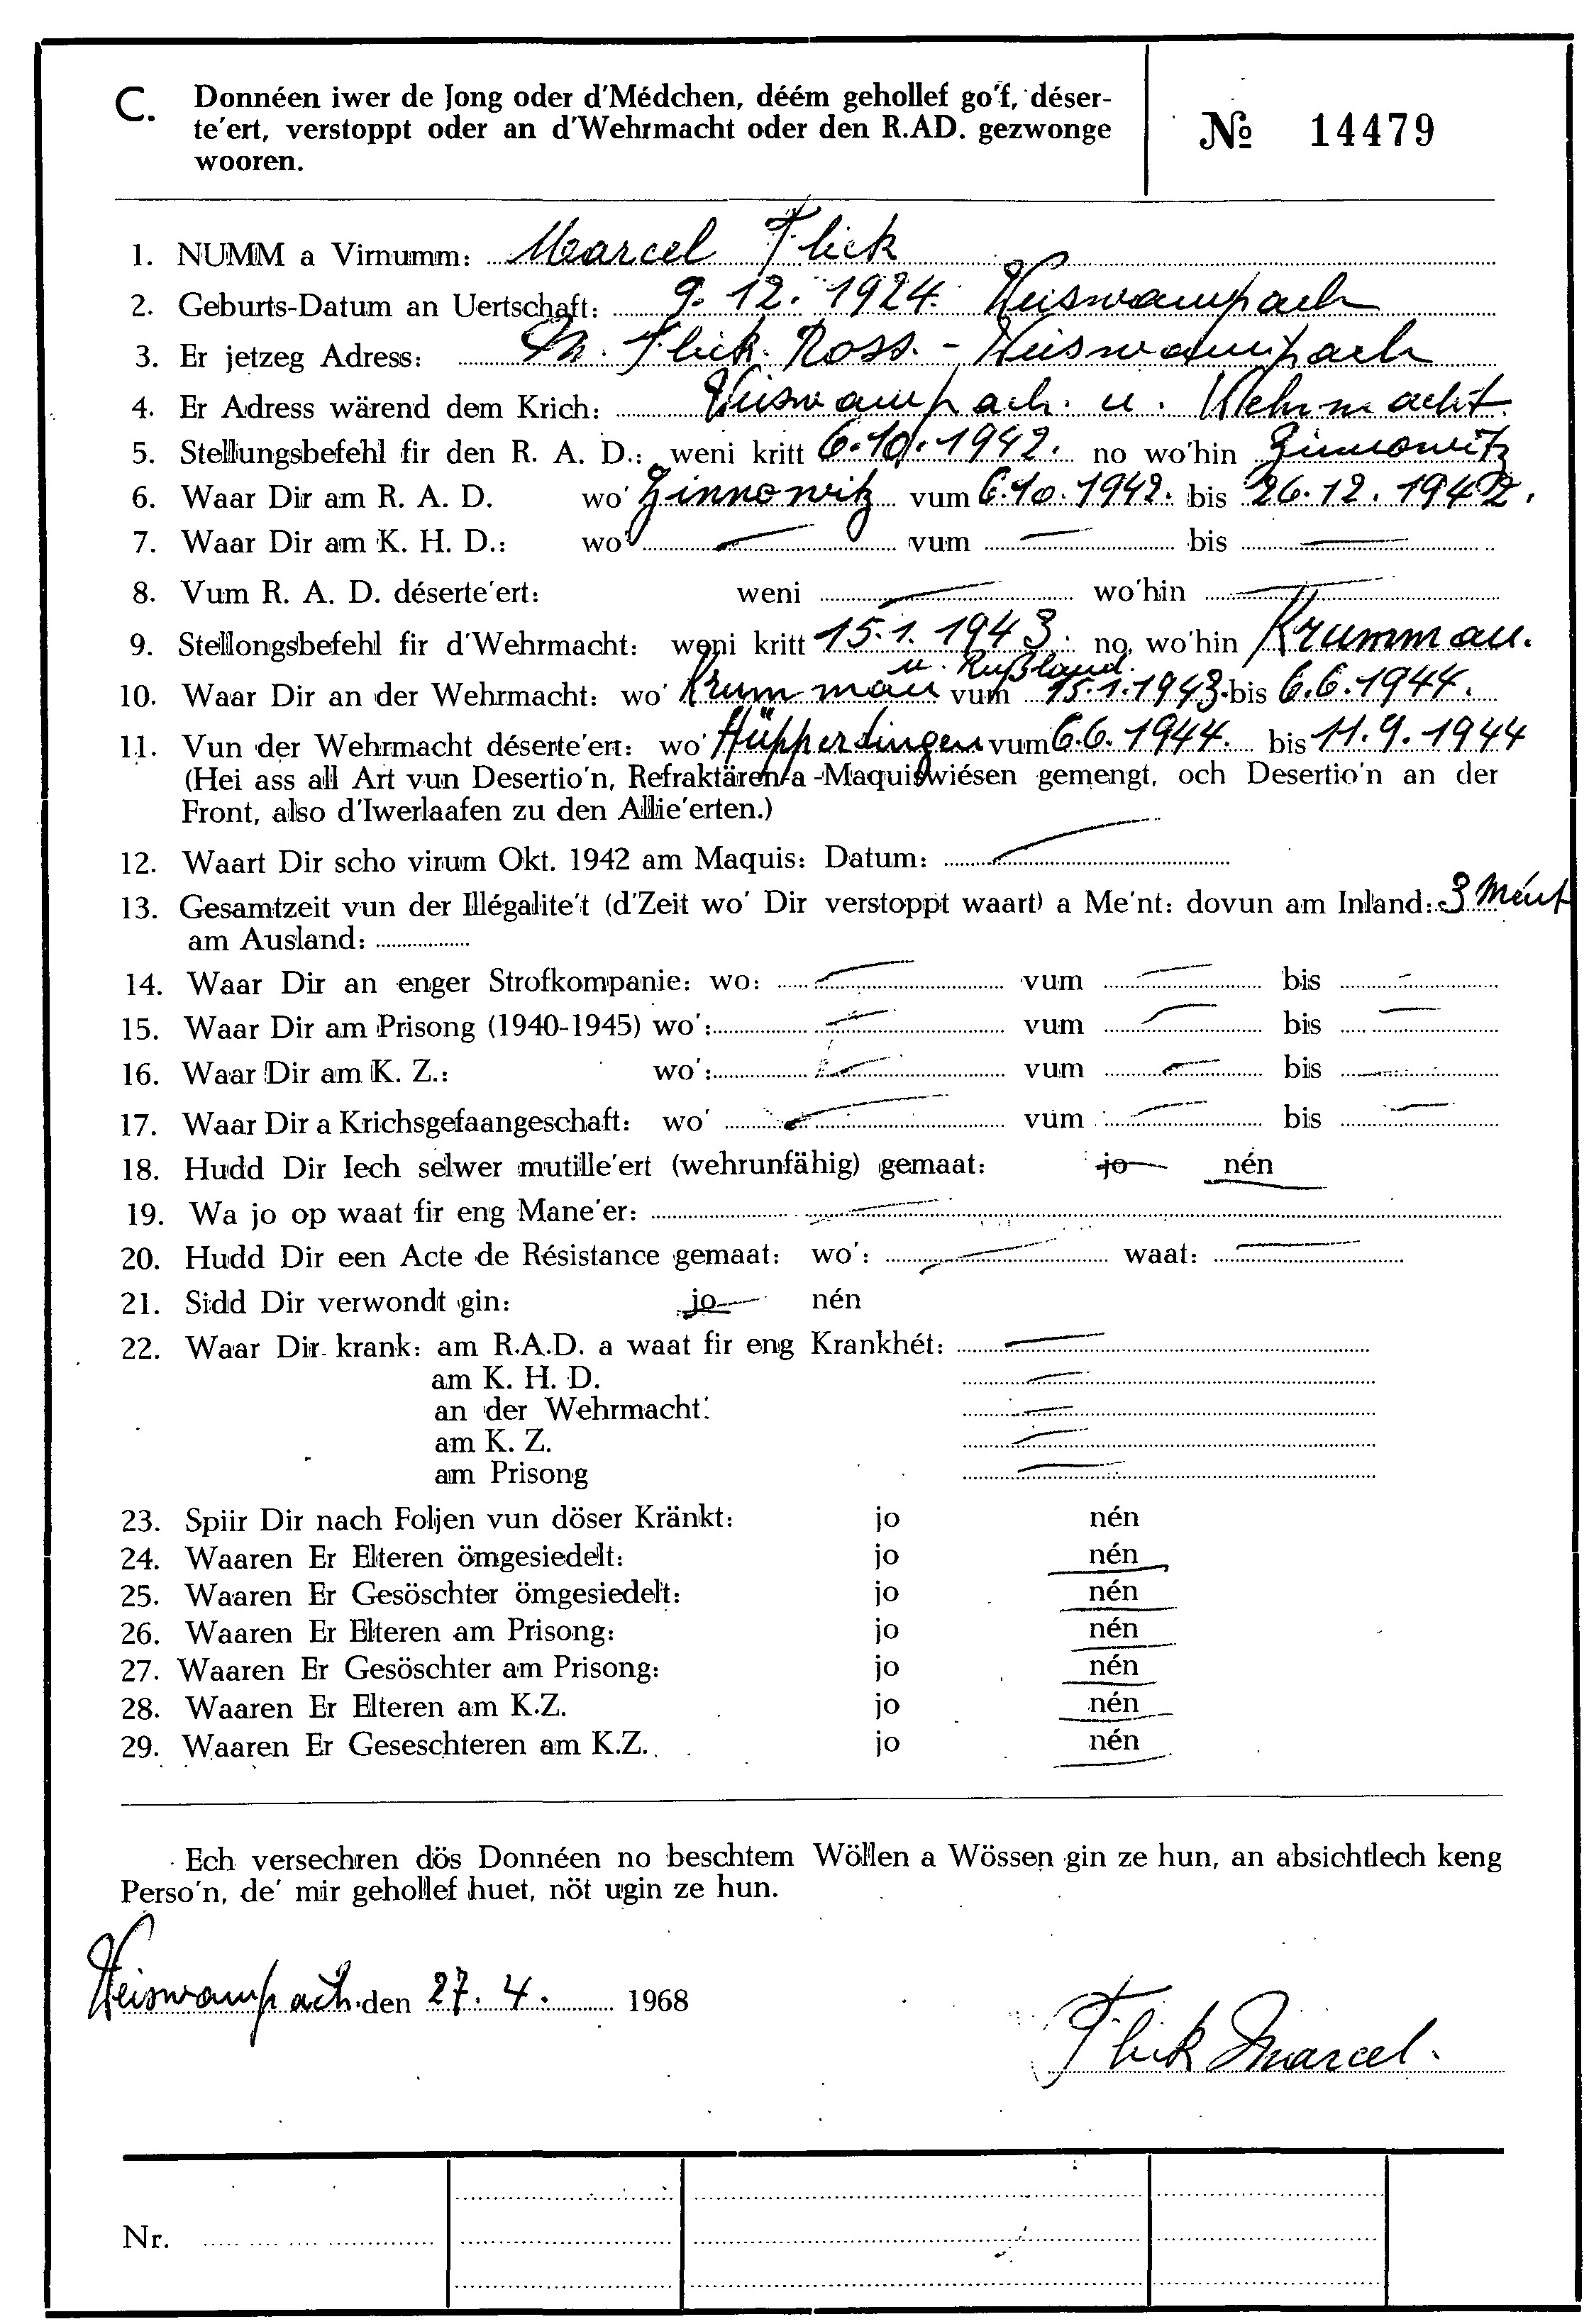 C. Donnéen iwer de Jong oder d'Médchen, déém gehollef go'f, déser-
te'ert, verstoppt oder an d'Wehrmacht oder den R.AD. gezwonge
wooren.
№ 14479
1. NUMM a Virnumm: Marcel Flick
2. Geburts-Datum an Uertschaft: 9. 12. 1924. Weiswampach
3. Er jetzeg Adress: Flick. Ross. - Weiswampach
4. Er Adress wärend dem Krich: Weiswampach. u. Wehrmacht.
5. Stellungsbefehl fir den R. A. D.: weni kritt 6.10.1942. no wo'hin Zinnowitz
6. Waar Dir am R. A. D. wo' Zinnowitz vum 6.10.1942. bis 26.12.1942.
7. Waar Dir am K. H. D.: wo' — vum — bis —
8. Vum R. A. D. déserte'ert: weni — wo'hin —
9. Stellongsbefehl fir d'Wehrmacht: weni kritt 15.1.1943. no wo'hin Krummau.
u. Rußland.
10. Waar Dir an der Wehrmacht: wo' Krummau vum 15.1.1943. bis 6.6.1944.
11. Vun der Wehrmacht déserte'ert: wo' Hüpperdingen vum 6.6.1944. bis 11.9.1944
(Hei ass all Art vun Desertio'n, Refraktären a -Maquiswiésen gemengt, och Desertio'n an der
Front, also d'Iwerlaafen zu den Allie'erten.)
12. Waart Dir scho virum Okt. 1942 am Maquis: Datum: —
13. Gesamtzeit vun der Illégalite't (d'Zeit wo' Dir verstoppt waart) a Me'nt: dovun am Inland: 3 Méint
am Ausland:
14. Waar Dir an enger Strofkompanie: wo: — vum — bis —
15. Waar Dir am Prisong (1940-1945) wo': — vum — bis —
16. Waar Dir am K. Z.: wo': — vum — bis —
17. Waar Dir a Krichsgefaangeschaft: wo' — vum — bis —
18. Hudd Dir Iech selwer mutille'ert (wehrunfähig) gemaat: jo nén
19. Wa jo op waat fir eng Mane'er: —
20. Hudd Dir een Acte de Résistance gemaat: wo': — waat: —
21. Sidd Dir verwondt gin: jo nén
22. Waar Dir krank: am R.A.D. a waat fir eng Krankhét: —
am K. H. D. —
an der Wehrmacht: —
am K. Z. —
am Prisong —
23. Spiir Dir nach Foljen vun döser Kränkt: jo nén
24. Waaren Er Elteren ömgesiedelt: jo nén
25. Waaren Er Gesöschter ömgesiedelt: jo nén
26. Waaren Er Elteren am Prisong: jo nén
27. Waaren Er Gesöschter am Prisong: jo nén
28. Waaren Er Elteren am K.Z. jo nén
29. Waaren Er Geseschteren am K.Z. jo nén
Ech versechren dös Donnéen no beschtem Wöllen a Wössen gin ze hun, an absichtlech keng
Perso'n, de' mir gehollef huet, nöt ugin ze hun.
Weiswampach. den 27. 4. 1968
Flick Marcel.
Nr.